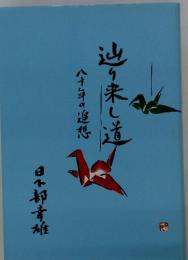 辿り来し道
八十年の追想
日下部幸雄